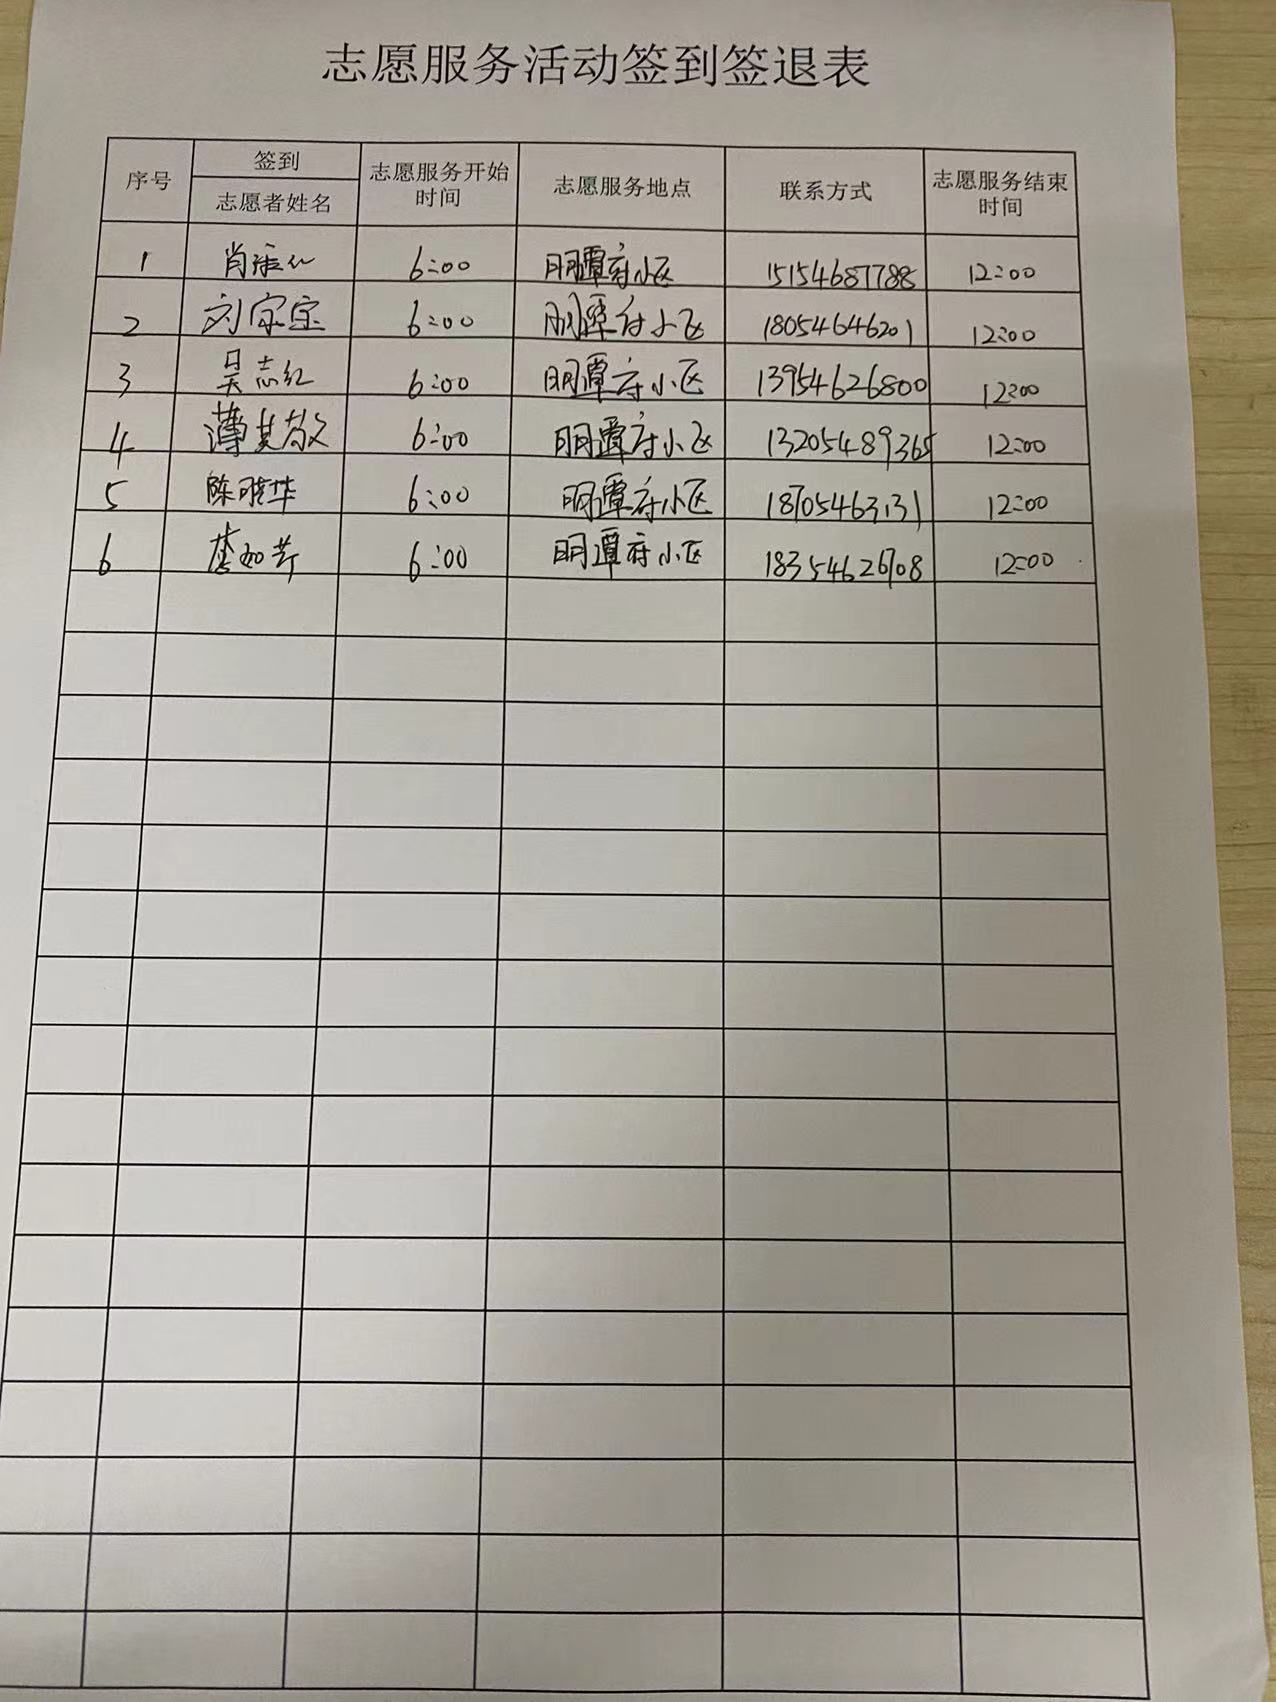 志愿服务活动签到签退表
序号 签到 志愿者姓名 志愿服务开始时间 志愿服务地点 联系方式 志愿服务结束时间
1 肖 6:00 明潭府小区 15154687788 12:00
2 刘宗宝 6:00 明潭府小区 18054646201 12:00
3 吴志红 6:00 明潭府小区 13954626800 12:00
4 薄其敬 6:00 明潭府小区 13205489365 12:00
5 陈 华 6:00 明潭府小区 18705463131 12:00
6 李如芳 6:00 明潭府小区 18354626708 12:00